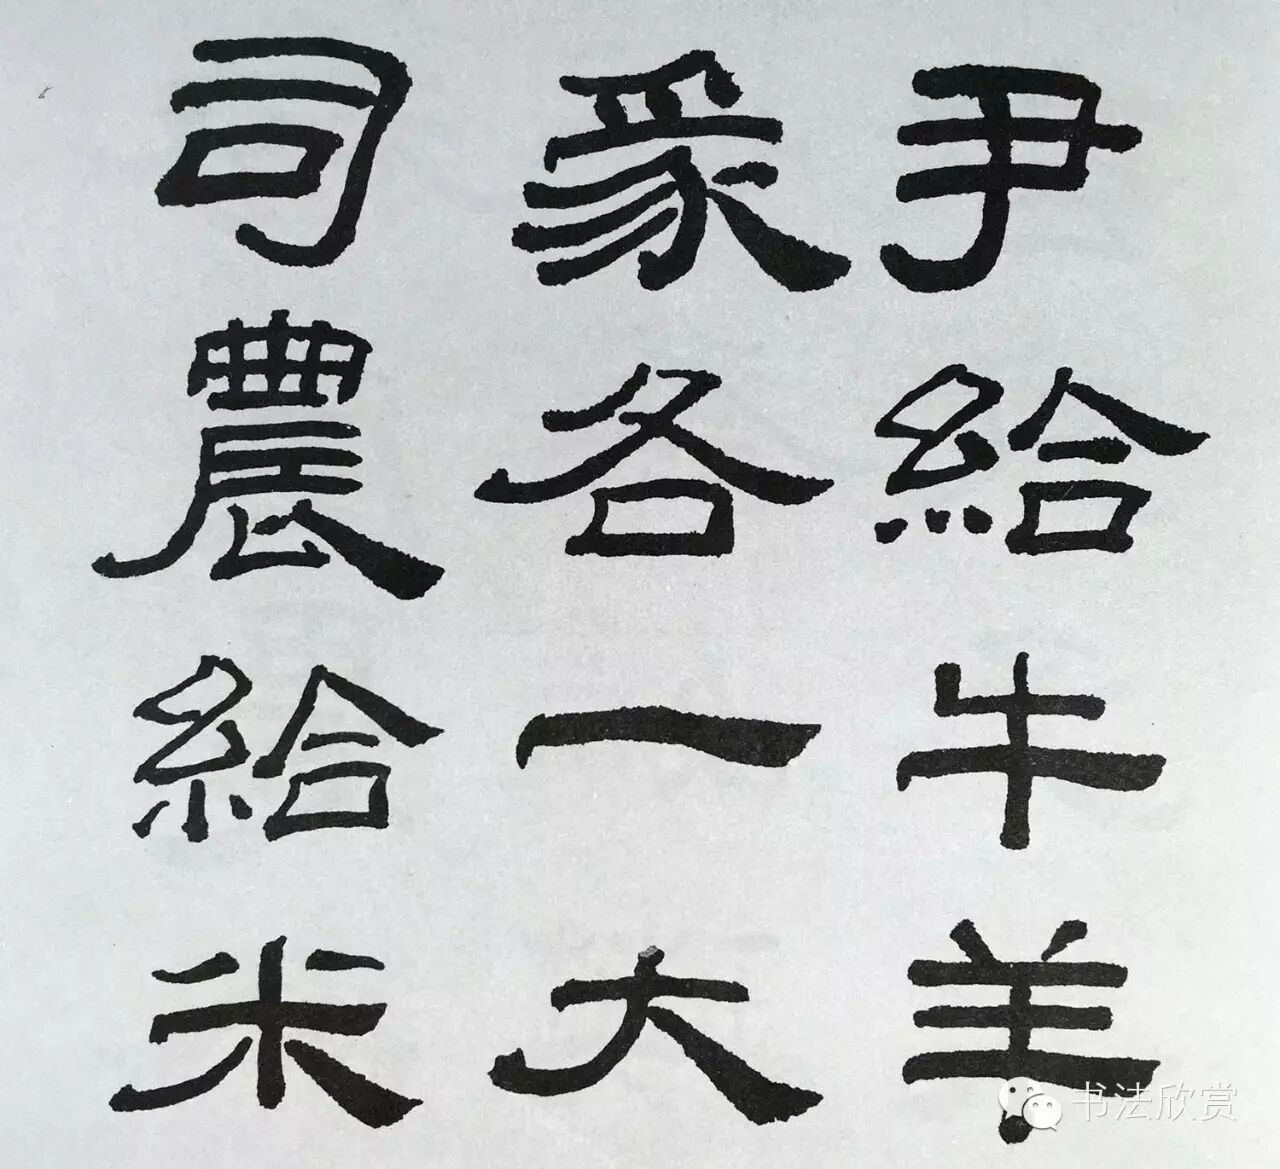 尹給牛羊
豕各一大
司農給米
书法欣赏